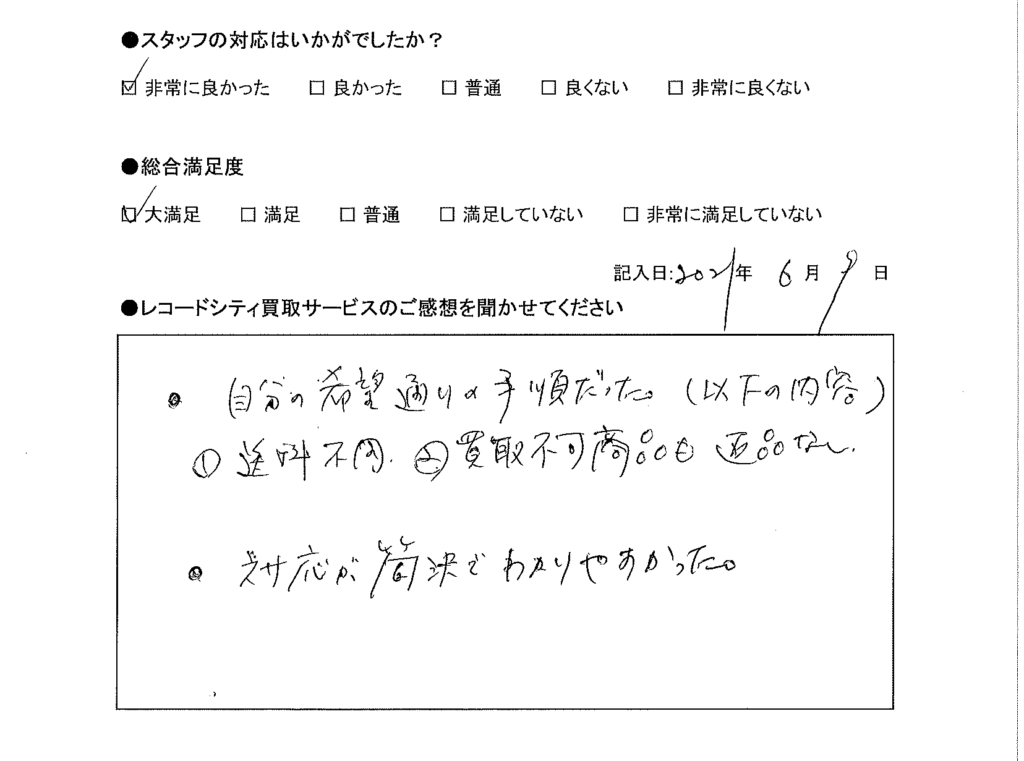 ●スタッフの対応はいかがでしたか？
☑ 非常に良かった □ 良かった □ 普通 □ 良くない □ 非常に良くない
●総合満足度
☑ 大満足 □ 満足 □ 普通 □ 満足していない □ 非常に満足していない
記入日:2021年 6月 9日
●レコードシティ買取サービスのご感想を聞かせてください
• 自分の希望通りの手順だった。(以下の内容)
① 送料不用. ② 買取不可商品も返品なし.
• 対応が簡決でわかりやすかった。